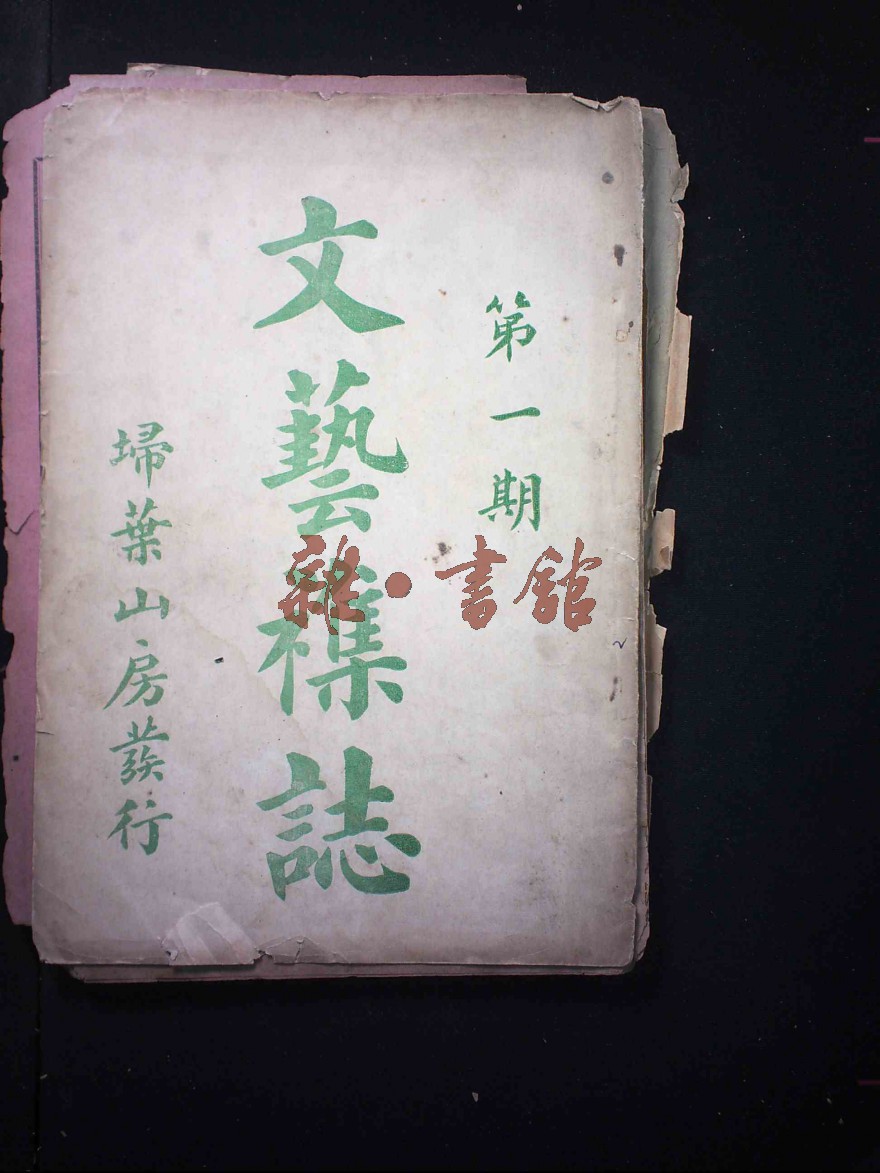 第一期
文藝襍誌
埽葉山房發行
雜·書館